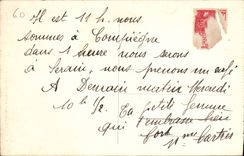 60
Il est 11 h. nous
sommes à Compiègne
dans 1 heure nous serons
à Serain, nous prenons un café
A Demain matin
10 h 1/2. Ta petite femme
qui t'embrasse bien
fort